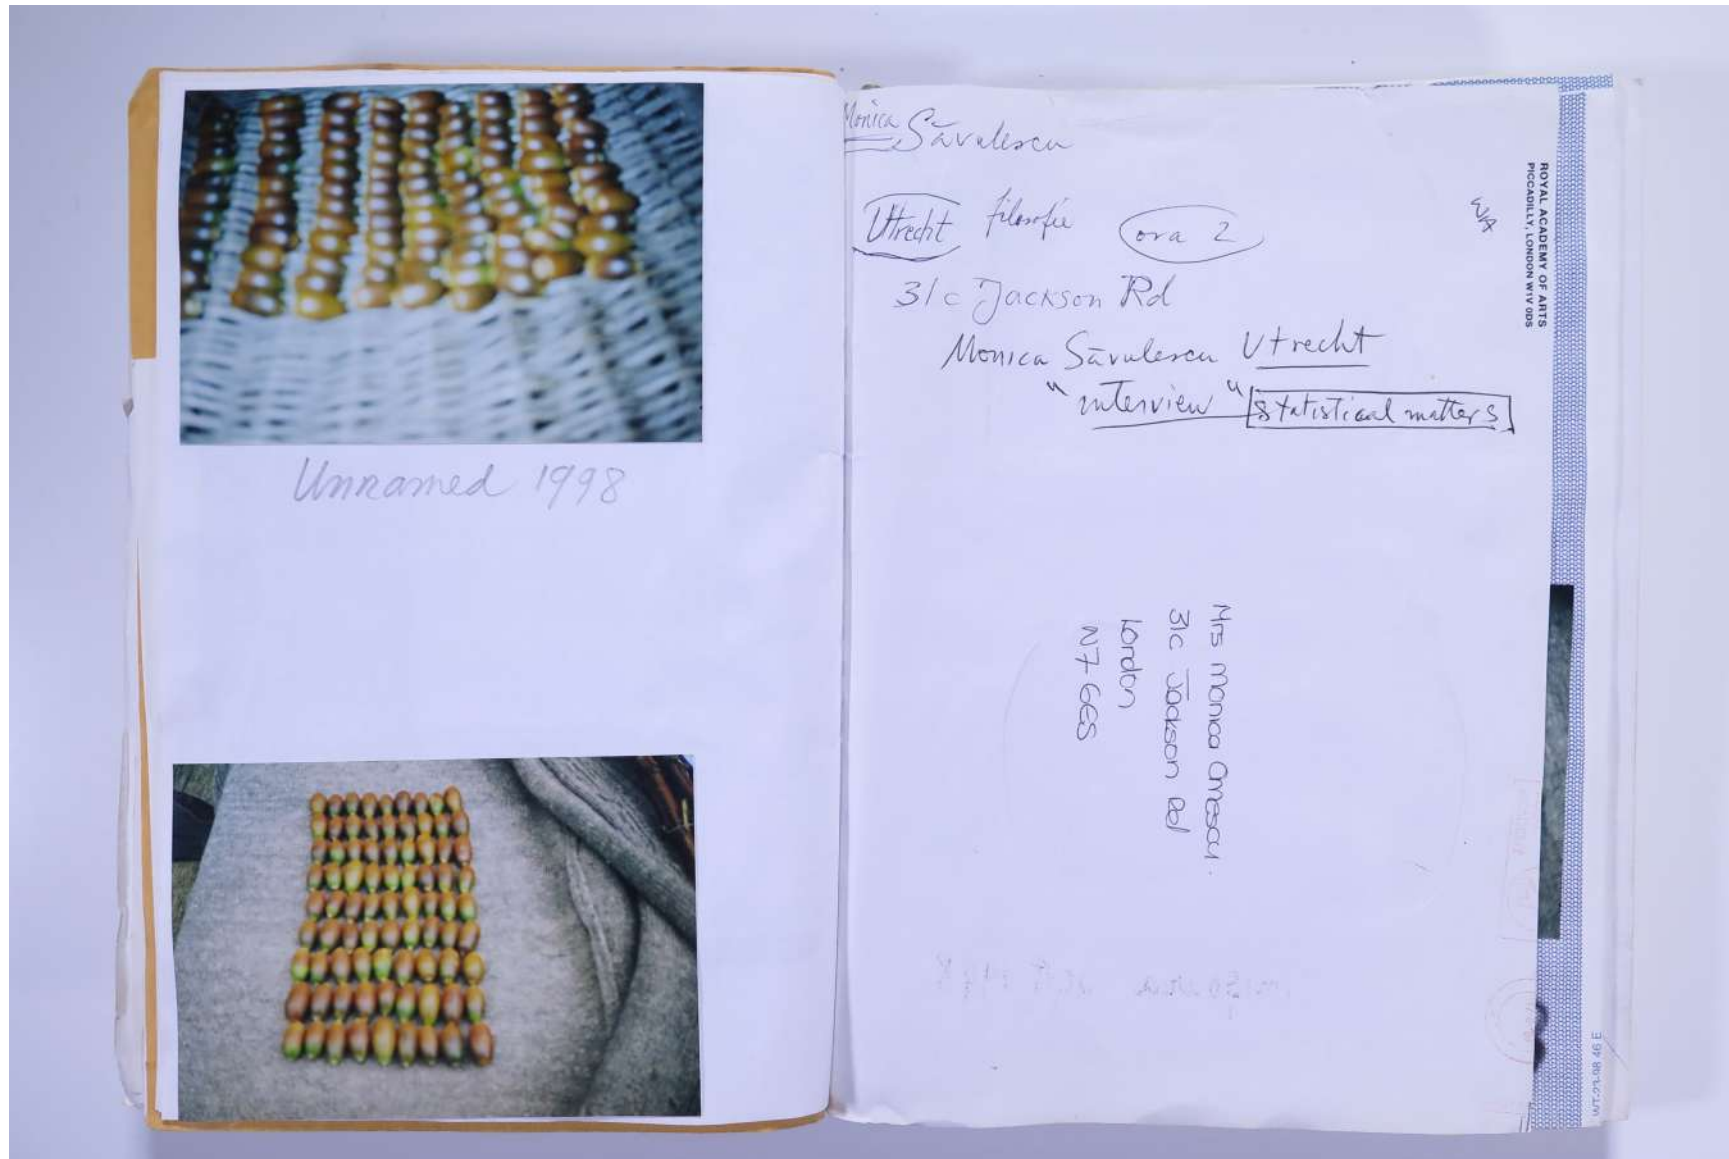 Unnamed 1998
Monica Săvulescu
Utrecht filosofie ora 2
31c Jackson Rd
Monica Săvulescu Utrecht
"interview" statistical matters
ROYAL ACADEMY OF ARTS
PICCADILLY, LONDON W1V 0DS
Mrs Monica Omescu.
31c Jackson Rd
London
N7 6ES
WT-23-98 46 E